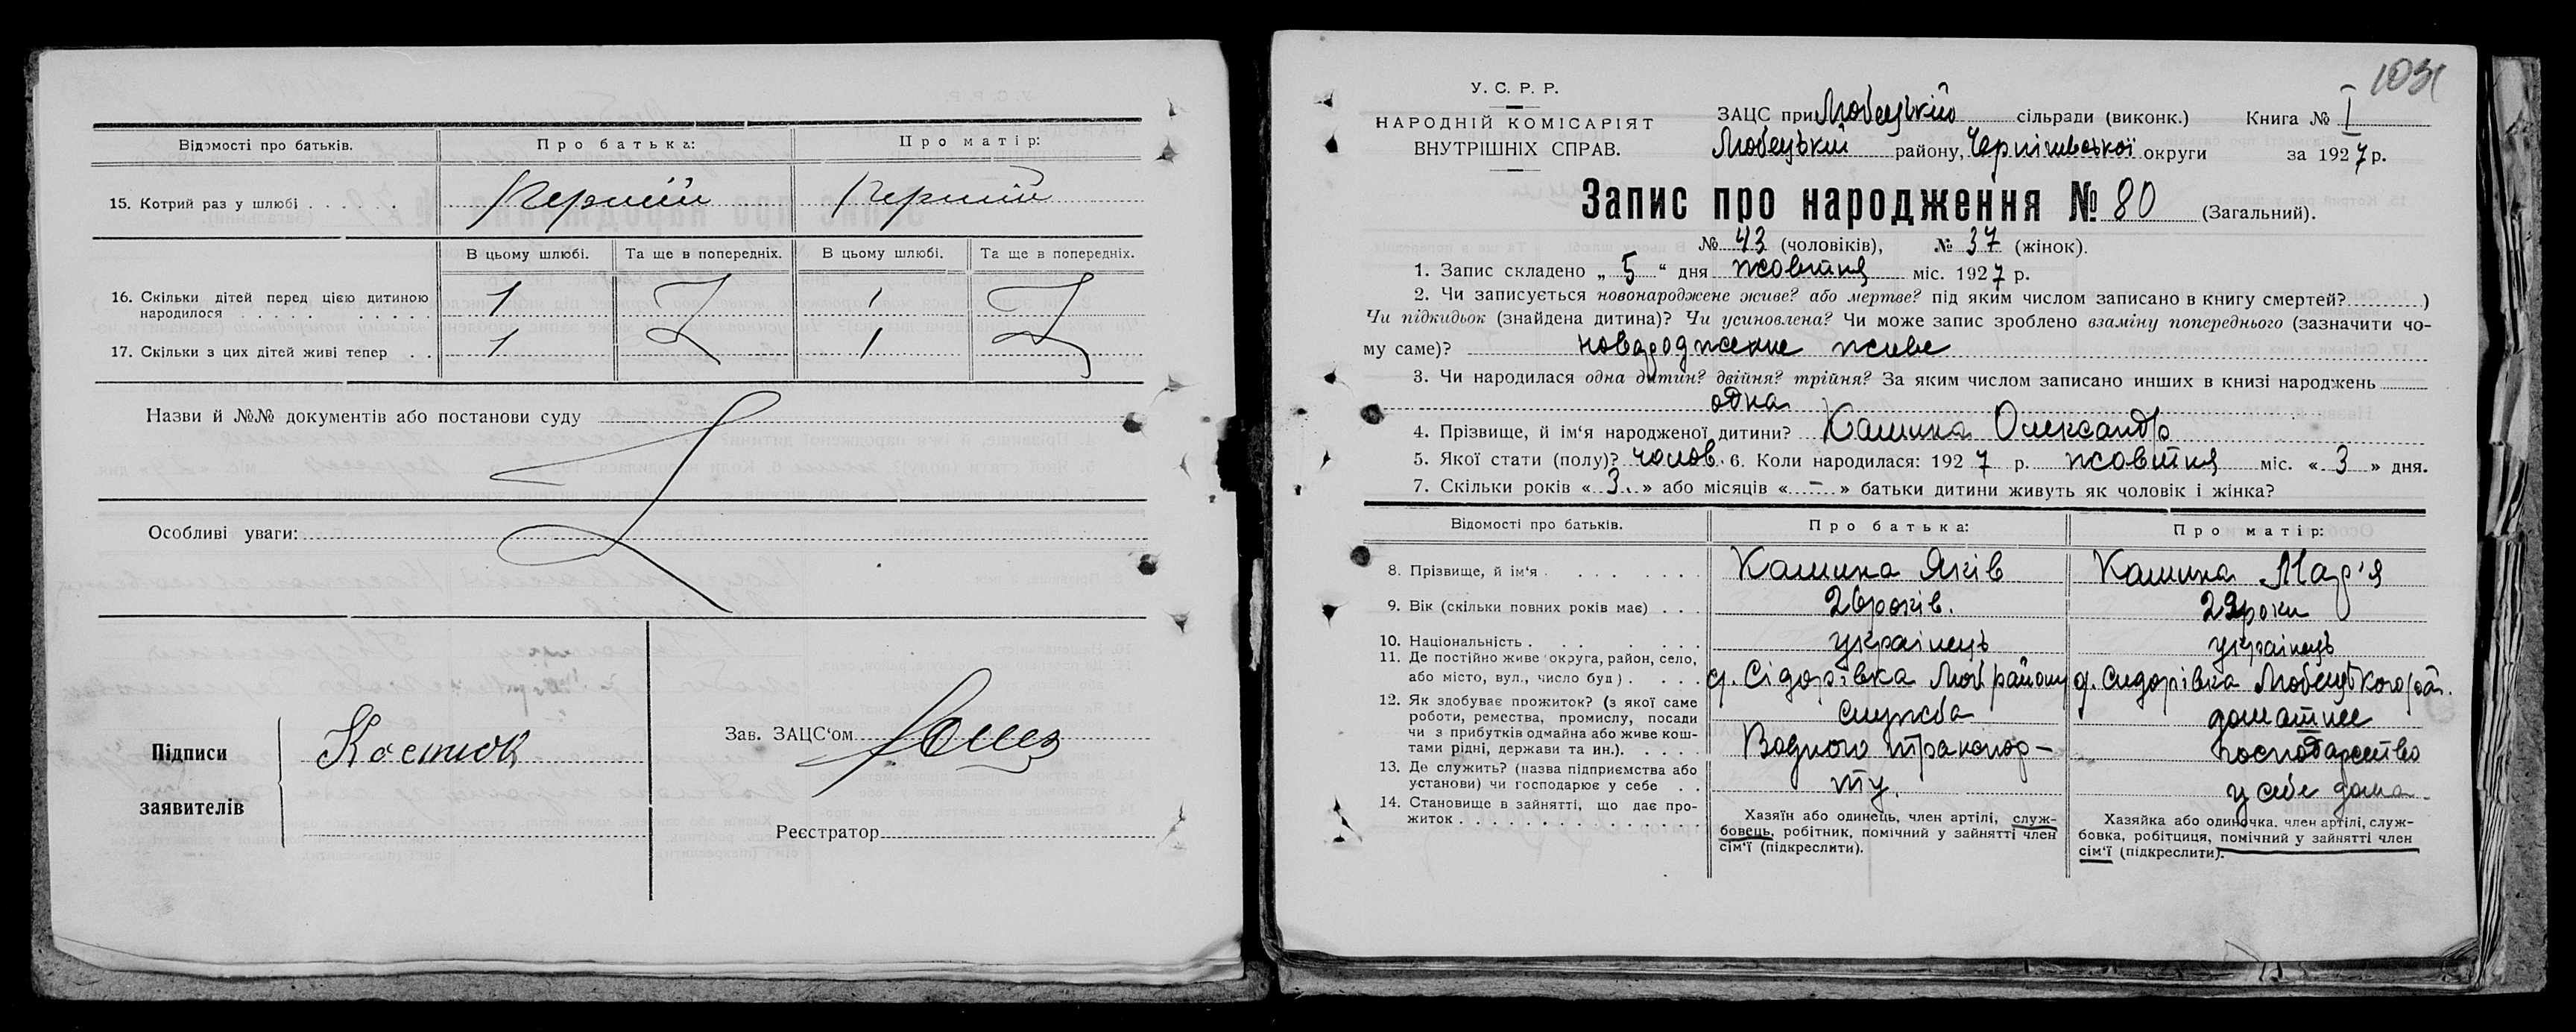 Відомості про батьків. Про батька: Про матір:
15. Котрий раз у шлюбі Перший Перший
В цьому шлюбі. Та ще в попередніх. В цьому шлюбі. Та ще в попередніх.
16. Скільки дітей перед цією дитиною
народилося 1 1
17. Скільки з цих дітей живі тепер 1 1
Назви й №№ документів або постанови суду
Особливі уваги:
Підписи
заявителів
Костюк
Зав. ЗАЦС'ом
Реєстратор
У. С. Р. Р.
НАРОДНІЙ КОМІСАРІЯТ
ВНУТРІШНІХ СПРАВ.
ЗАЦС при Любецькій сільради (виконк.) Книга № I
Любецький району, Чернігівської округи за 1927 р.
Запис про народження № 80 (Загальний).
№ 43 (чоловіків), № 37 (жінок).
1. Запис складено „ 5 " дня жовтня міс. 1927 р.
2. Чи записується новонароджене живе? або мертве? під яким числом записано в книгу смертей? )
Чи підкидьок (знайдена дитина)? Чи усиновлена? Чи може запис зроблено взаміну попереднього (зазначити чо-
му саме)? живе
3. Чи народилася одна дитин? двійня? трійня? За яким числом записано инших в книзі народжень
одна
4. Прізвище, й ім'я народженої дитини? Калина Олександр
5. Якої стати (полу)? чолов. 6. Коли народилася: 1927 р. жовтня міс. « 3 » дня.
7. Скільки років « 3 » або місяців « – » батьки дитини живуть як чоловік і жінка?
Відомості про батьків. Про батька: Про матір:
8. Прізвище, й ім'я Калина Яків Калина Мар'я
9. Вік (скільки повних років має) 26 років. роки
10. Національність українець українець
11. Де постійно живе округа, район, село,
або місто, вул., число буд) д. Сідорівка Люб району д. Сидорівка Любецького рай.
12. Як здобуває прожиток? (з якої саме
роботи, ремества, промислу, посади
чи з прибутків одмайна або живе кош-
тами рідні, держави та ин.). служба домашнее
13. Де служить? (назва підприємства або
установи) чи господарює у себе Водного у себе дома
14. Становище в зайнятті, що дає про-
житок
Хазяїн або одинець, член артілі, служ-
бовець, робітник, помічний у зайнятті член
сім'ї (підкреслити).
Хазяйка або одиночка, член артілі, служ-
бовка, робітниця, помічний у зайнятті член
сім'ї (підкреслити).